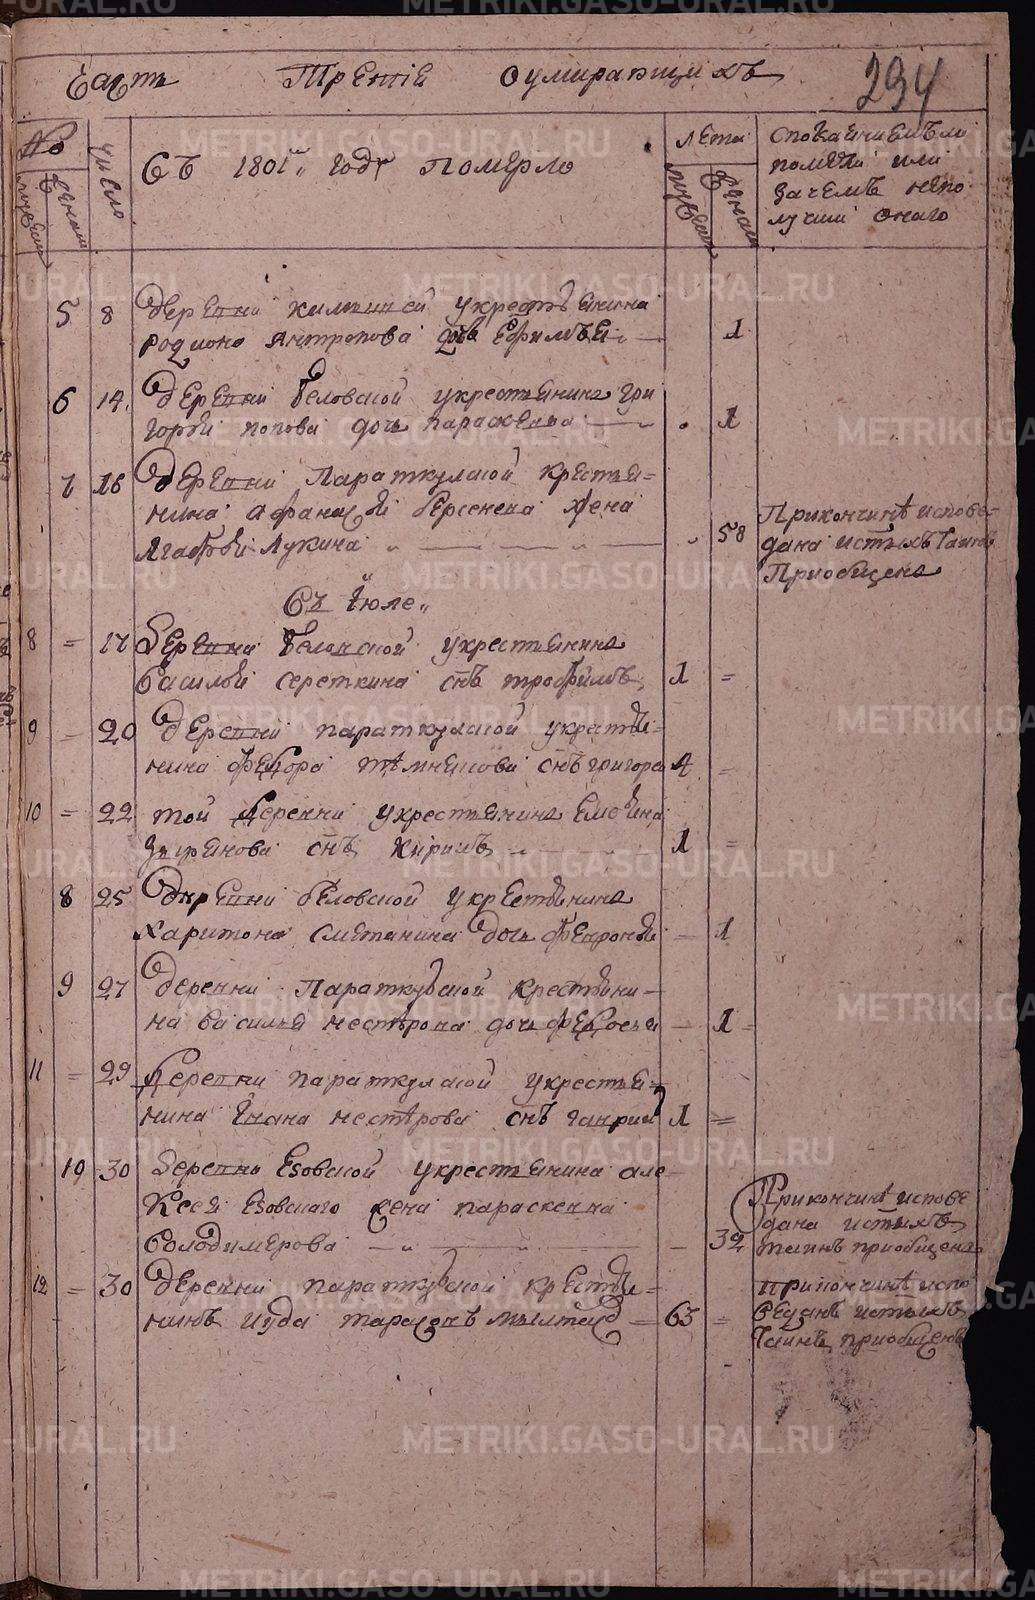 Часть Третіе оумирающихъ
294
No
мужеска
женска
число
Въ 1801м году Померло
лета
мужеска
женска
спокаениемъ ли
померли или
зачемъ непо
лучили онаго
5 8 Деревни укрестьянина
родиона Антропова дочь Ефимья 1
6 14. Деревни беловской укрестьянина гри
горья попова дочь параскева 1
7 16 Деревни Параткулской крестья=
нина афанасья берсенева жена
Агафья Лукина 58
Прикончине испове=
дана истыхъ таинъ
Приобщена
Въ Июле
8 = 17 Деревни беловской укрестьянина
василья сереткина снъ трофимъ 1 =
9 = 20 Деревни параткулской укрестья=
нина федора снъ григорей 4 =
10 = 22 той деревни укрестьянина
снъ 1 =
8 25 Деревни беловской укрестьянина
харитона сметанина дочь феврония 1
9 27 Деревни Параткулской крестьяни=
на василья нестерова дочь федосья 1 =
11 = 29 Деревни параткулской укрестья=
нина Ивана нестерова снъ гаврил 1 =
10 30 Деревни Езовской укрестьянина але
ксея Езовскаго жена параскевиа
володимерова 32
Прикончине испове
дана истыхъ
таинъ приобщена
12 = 30 Деревни параткулской крестья=
нинъ иуда тарасовъ 63 =
прикончине испо
веданъ истыхъ
таинъ приобщенъ
METRIKI.GASO-URAL.RU